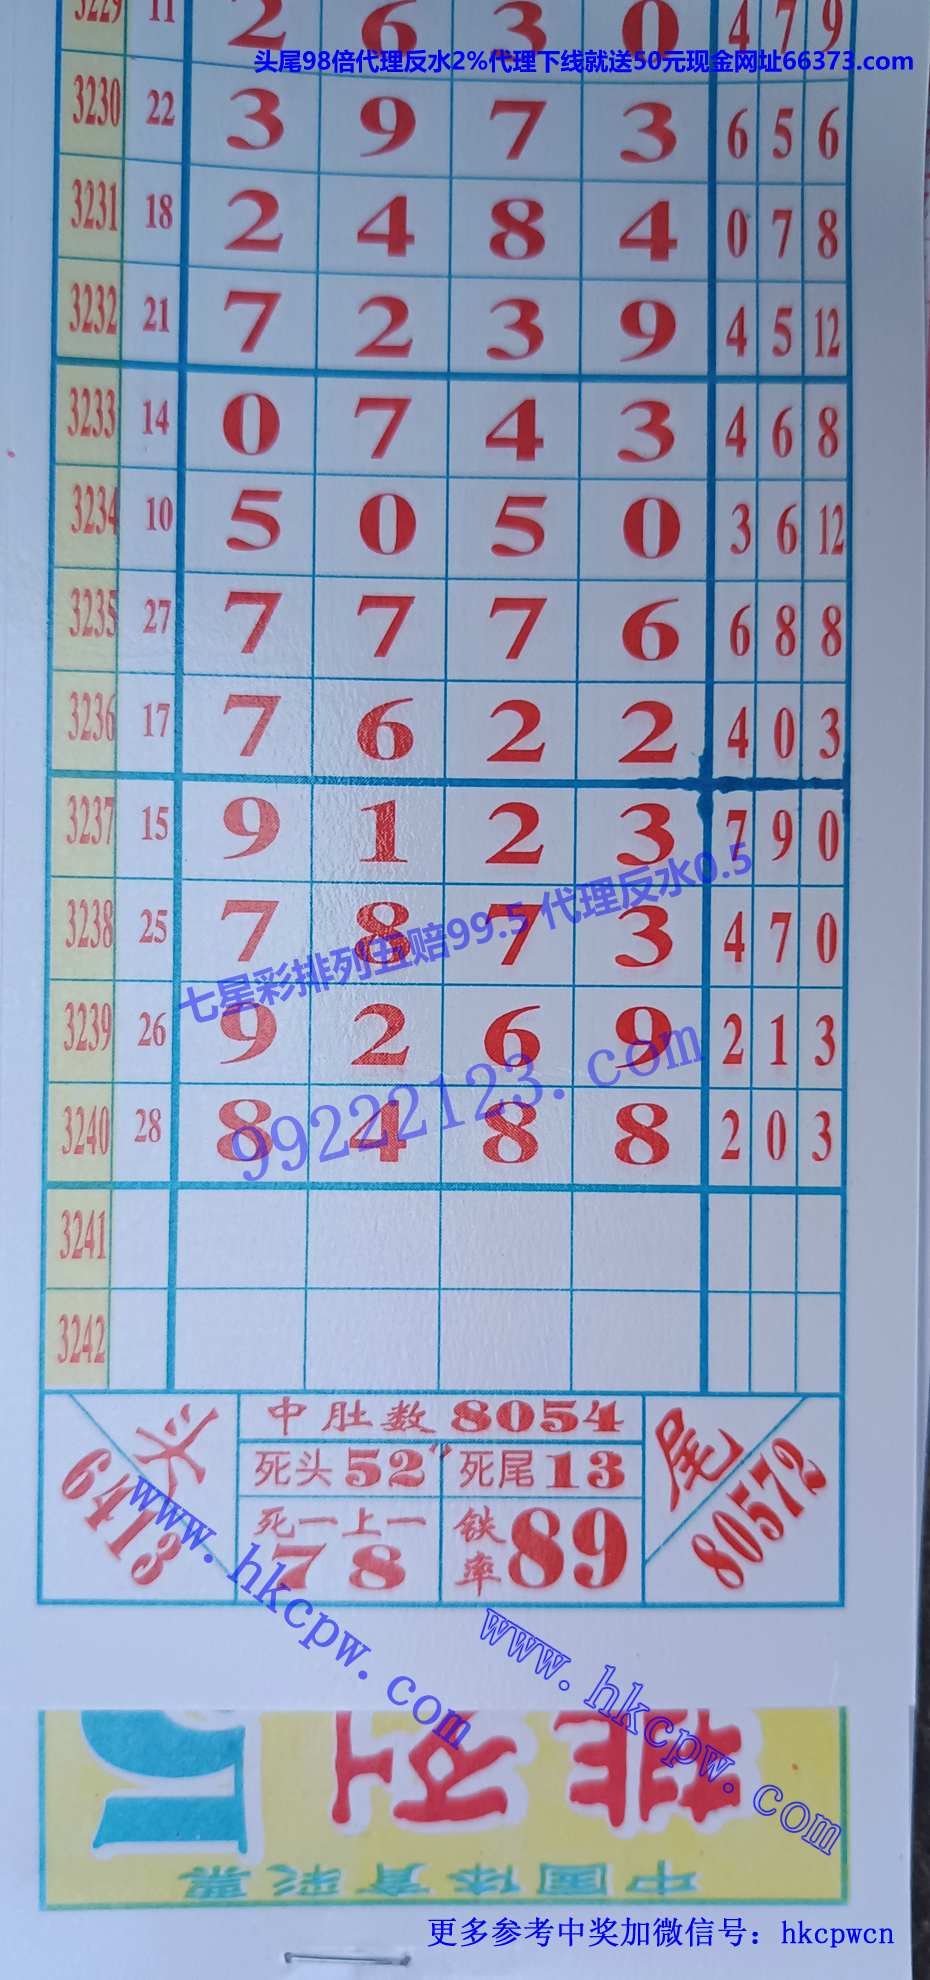 3229 11 2 6 3 0 4 7 9
头尾98倍代理反水2%代理下线就送50元现金网址66373.com
3230 22 3 9 7 3 6 5 6
3231 18 2 4 8 4 0 7 8
3232 21 7 2 3 9 4 5 12
3233 14 0 7 4 3 4 6 8
3234 10 5 0 5 0 3 6 12
3235 27 7 7 7 6 6 8 8
3236 17 7 6 2 2 4 0 3
3237 15 9 1 2 3 7 9 0
3238 25 7 8 7 3 4 7 0
七星彩排列五赔99.5 代理反水0.5
3239 26 9 2 6 9 2 1 3
99222123.com
3240 28 8 4 8 8 2 0 3
3241
3242
头
6413
中肚数8054
死头52
死尾13
死一上一
78
铁率89
尾
80572
www.hkcpw.com
www.hkcpw.com
排列5
中国体育彩票
更多参考中奖加微信号：hkcpwcn